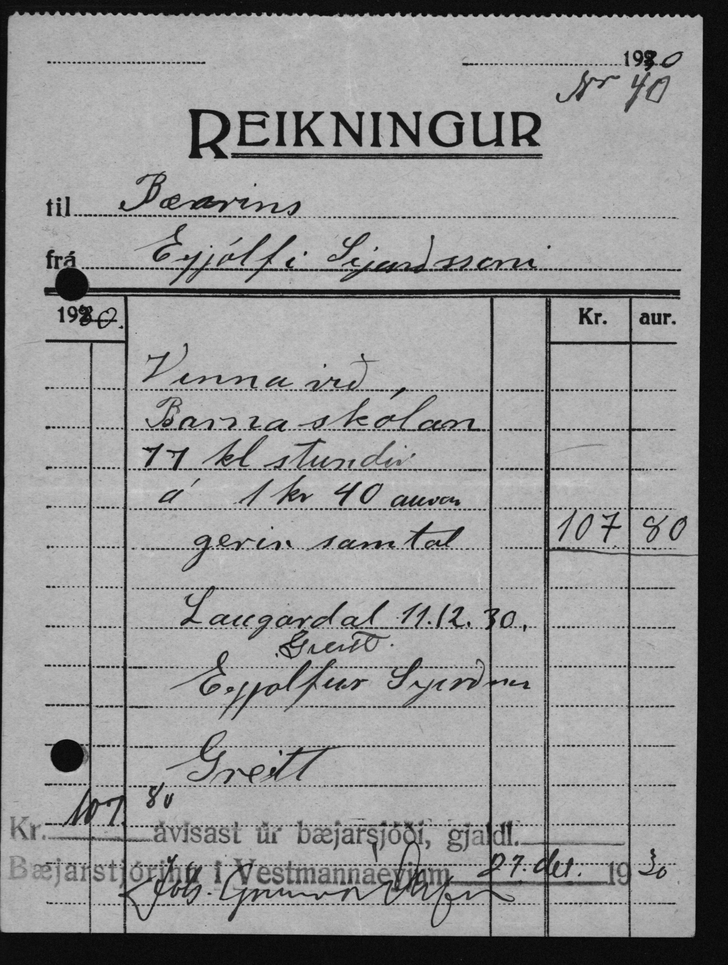 1930
Nr 40
REIKNINGUR
til Bæarins
frá Eyjólfi Sigurdssoni
1930. Kr. aur.
Vinna við
Barnaskólan
77 kl stundir
á 1 kr 40 aura
gerir samtal 107 80
Laugardal 11.12.30.
Greitt.
Eyjolfur
Greitt
Kr. 107 80 ávísast úr bæjarsjóði, gjaldl.
Bæjarstjórinn í Vestmannaeyjum 27. des. 1930
Jóh. Gunnar